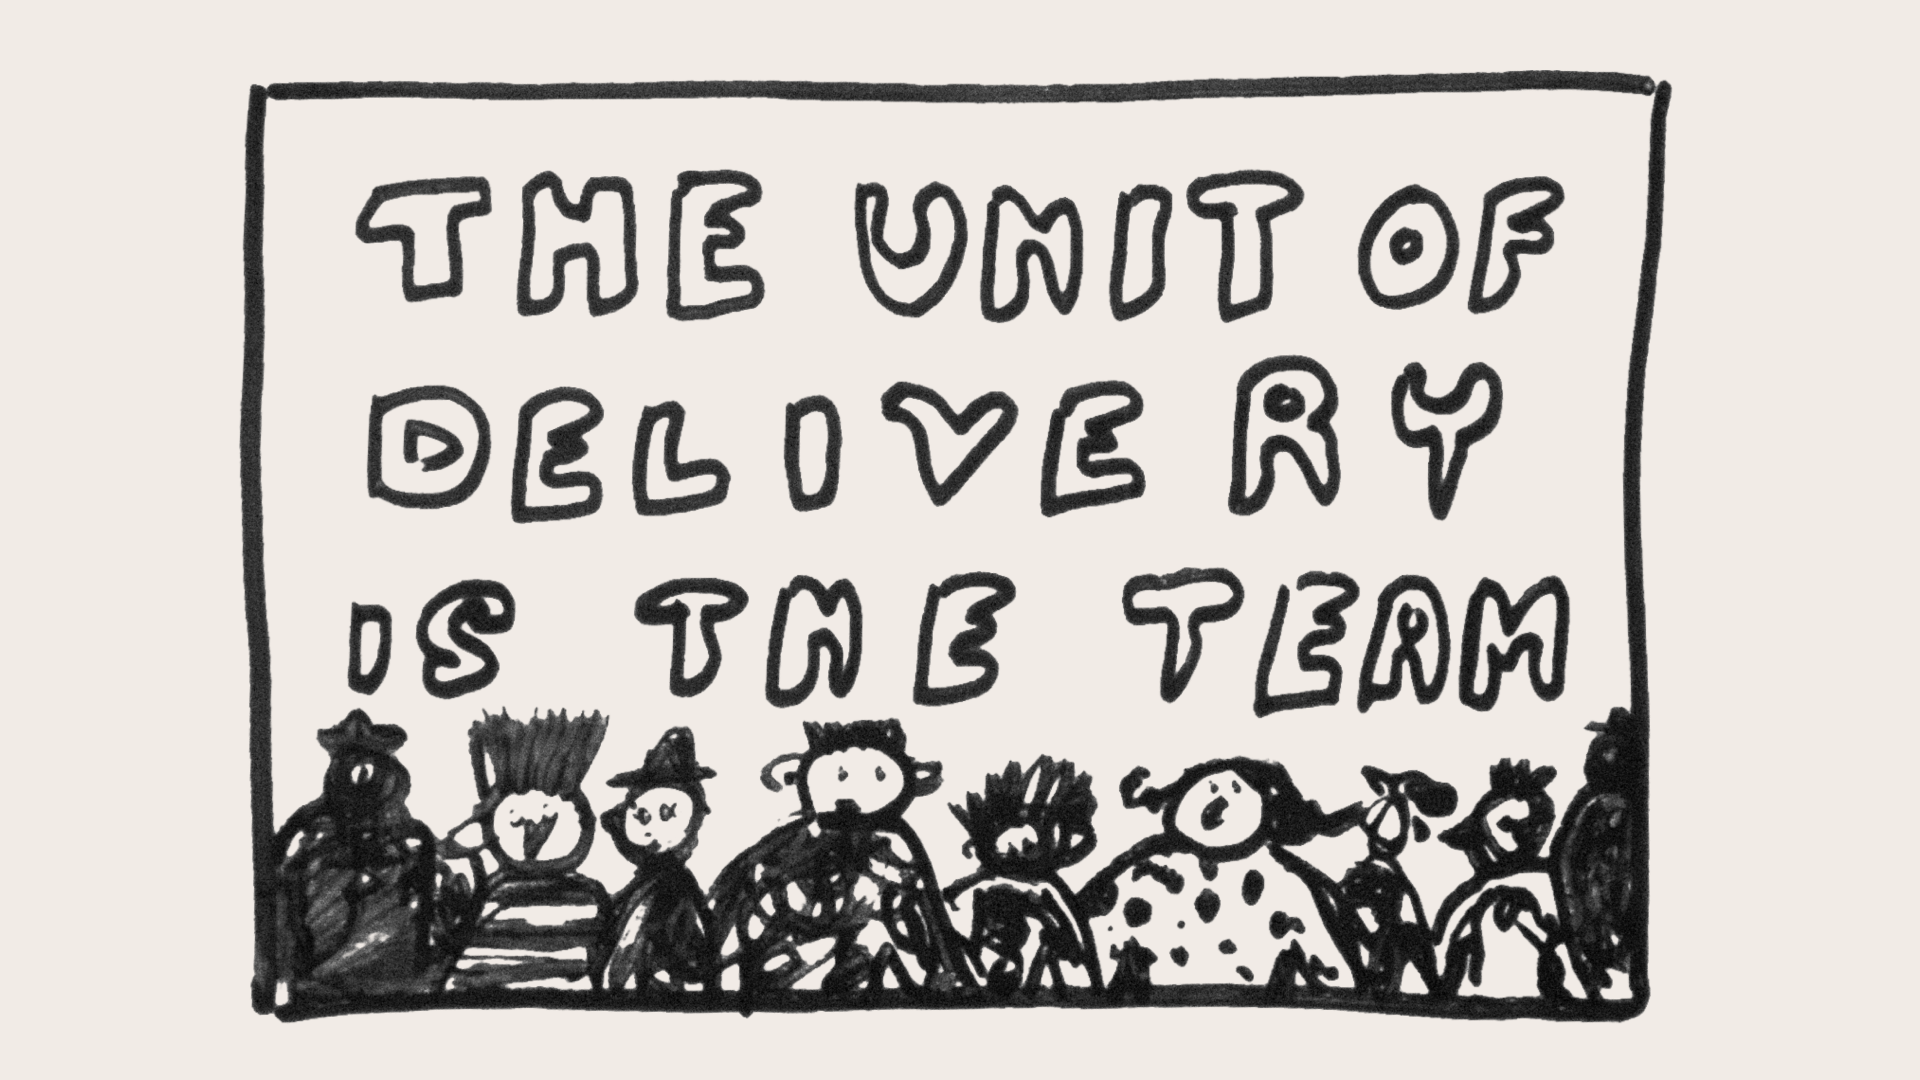 THE UNIT OF
DELIVERY
IS THE TEAM